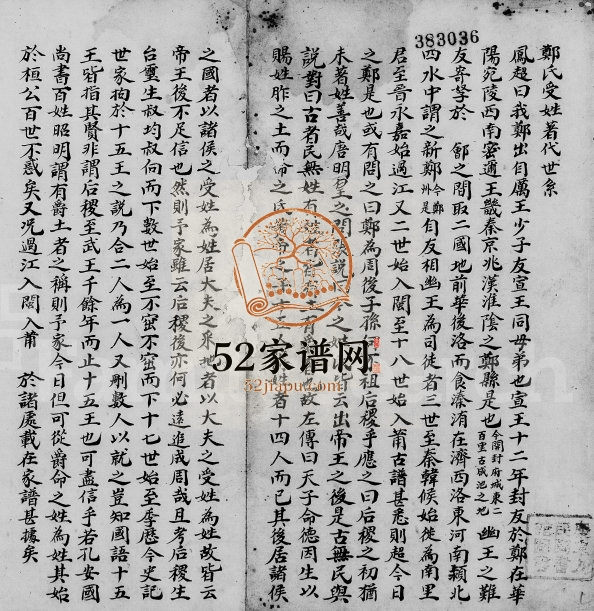 383036
鄭氏受姓著代世系
鳳超曰我鄭出自厲王少子友宣王同母弟也宣王十二年封友於鄭在華
陽宛陵西南密邇王畿秦京兆漢淮陰之鄭縣是也今開封府城東二百里古咸池之地幽王之難
友寄孥於 鄶之間取二國地前華後洛而食溱洧在濟西洛東河南潁北
四水中謂之新鄭今鄭州是自友相幽王為司徒者三世至秦韓候始徙為南里
君至晉永嘉始過江又二世始入閩至十八世始入莆古譜甚悉則超今日
之鄭是也或有問之曰鄭為周後子孫 祖后稷乎應之曰后稷之初猶
未著姓善哉唐明皇之問張說 之姓 云出帝王之後是古無民與
說對曰古者民無姓有 故左傳曰天子命德因生以
賜姓胙之土而命之氏黃帝之 者十四人而已其後居諸侯
之國者以諸侯之受姓為姓居大夫之采地者以大夫之受姓為姓故皆云
帝王後不足信也然則予家雖云后稷後亦何必遠追成周哉且考后稷生
台璽生叔均叔向而下數世始至不窋不窋而下十七世始至季歷今史記
世家拘於十五王之說乃合二人為一人又刪數人以就之豈知國語十五
王皆指其賢非謂后稷至武王千餘年而止十五王也可盡信乎若孔安國
尚書百姓昭明謂有爵土者之稱則予家今日但可從爵命之姓為姓其始
於桓公百世不惑矣又況過江入閩入莆 於諸處載在家譜甚據矣
52家谱网
52jiapu.com